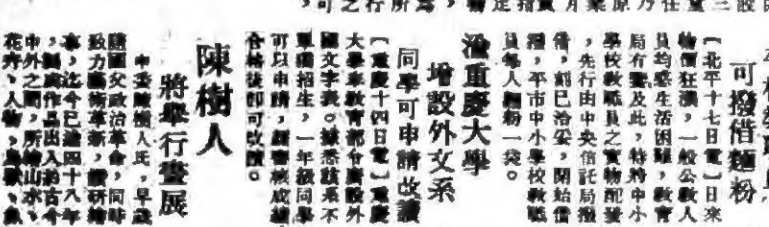 可撥借麵粉
〔北平十七日電〕日來
物價狂漲,一般公教人
員均感生活困難,教育
局有鑒及此,特將中小
學校教職員之實物配發
,先行由中央信託局撥
借,刻已洽妥,開始借
撥,平市中小學校教職
員每人麵粉一袋。
渝重慶大學
增設外文系
同學可申請改讀
〔重慶十四日電〕重慶
大學奉教育部令廣設外
國文字我。據悉該系不
單獨招生,一年級同學
可以申請,經審核成績
合格後即可改讀。
陳樹人
將舉行畫展
中委陳樹人氏,早歲
隨國父政治革命,同時
致力藝術革新,鑽研繪
事,迄今已逾四十八年
,其作品出入於古今
中外之間,所繪山水、
花卉、人物、鳥獸、魚